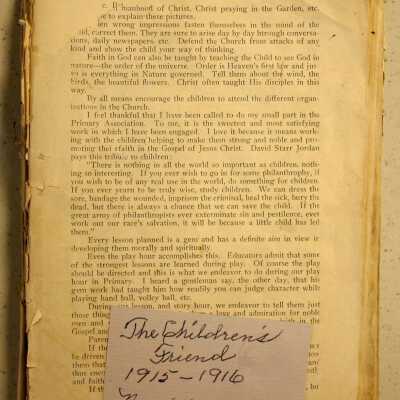 hood of Christ, Christ praying in the Garden, etc.
e to explain these pictures.
en wrong impressions fasten themselves in the mind of the
correct them. They are sure to arise day by day through conversa-
tions, daily newspapers, etc. Defend the Church from attacks of any
kind and show the child your way of thinking.
Faith in God can also be taught by teaching the Child to see God in
nature—the order of the universe. Order is Heaven's first life and
is everything in Nature governed. Tell them about the wind, the
birds, the beautiful flowers. Christ often taught His disciples in this
way.
By all means encourage the children to attend the different organ-
izations in the Church.
I feel thankful that I have been called to do my small part in the
Primary Association. To me, it is the sweetest and most satisfying
work in which I have been engaged. I love it because it means work-
ing with the children helping to make them strong and noble and pro-
moting their faith in the Gospel of Jesus Christ. David Starr Jordan
pays this tribute to children:
"There is nothing in all the world so important as children, noth-
ing so interesting. If you ever wish to go in for some philanthropy, if
you wish to be of any real use in the world, do something for children.
If you ever yearn to be truly wise, study children. We can dress the
sore, bandage the wounded, imprison the criminal, heal the sick, bury the
dead, but there is always a chance that we can save the child. If the
great army of philanthropists ever exterminate sin and pestilence, ever
work out our race's salvation, it will be because a little child has led
them."
Every lesson planned is a gem and has a definite aim in view in
developing them morally and spiritually.
Even the play hour accomplishes this. Educators admit that some
of the strongest lessons are learned during play. Of course the play
should be directed and this is what we endeavor to do during our play
hour in Primary. I heard a gentleman say, the other day, that his
gym work had taught him how readily you can judge character while
playing hand ball, volley ball, etc.
During our lesson, and story hour, we endeavor to tell them just
those thing a love and admiration for noble
men and in the
Gospel an
Paren
If th
be driven
them that
they can
and faith
If th but
The Children's
Friend
1915-1916